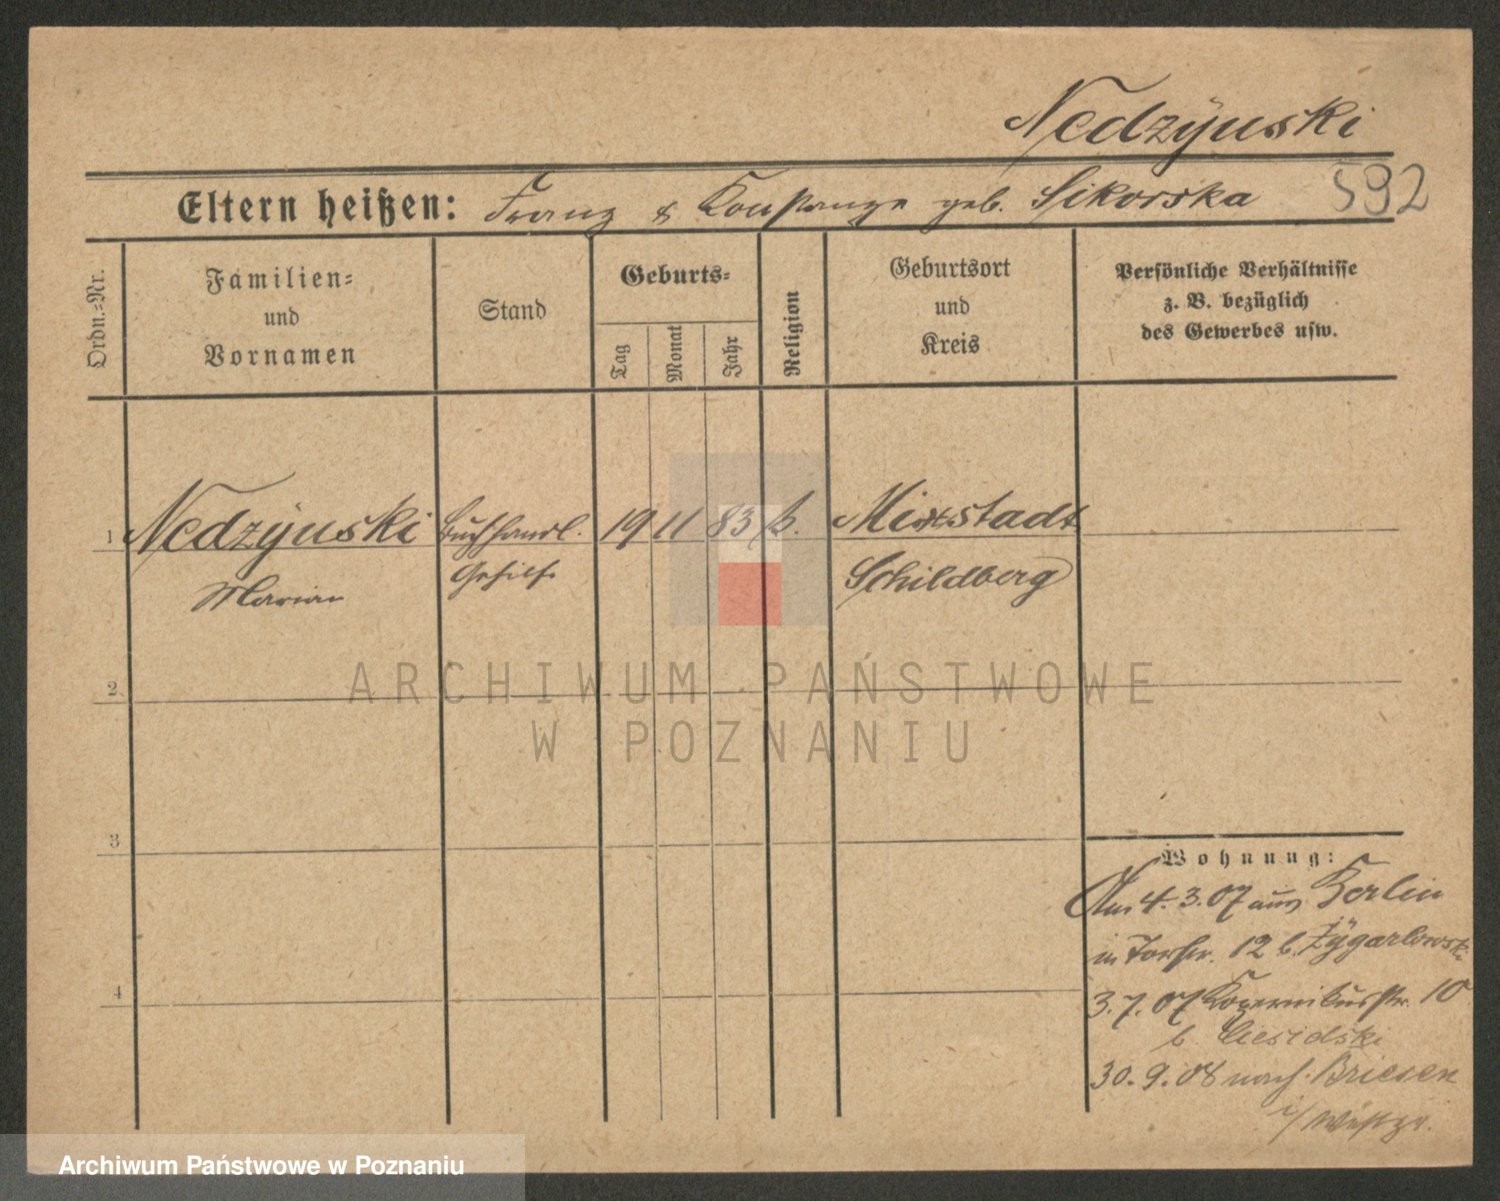 Nedzÿnski
592
Eltern heißen: Franz & Konstanze geb. Sikorska
Ordn.=Nr.
Familien=
und
Vornamen
Stand
Geburts=
Tag
Monat
Jahr
Religion
Geburtsort
und
Kreis
Persönliche Verhältnisse
z. B. bezüglich
des Gewerbes usw.
1 Nedzÿnski Buchhandl. 19 11 83 k. Mixstadt
Marian Gehilfe Schildberg
ARCHIWUM PAŃSTWOWE
W POZNANIU
2
3
4
Wohnung:
Am 4. 3. 07 aus Berlin
in Torstr. 12 b. Zÿgarlowski
3. 7. 07 Kopernikusstr. 10
b.
30. 9. 08 nach Briesen
i/ Westpr.
Archiwum Państwowe w Poznaniu